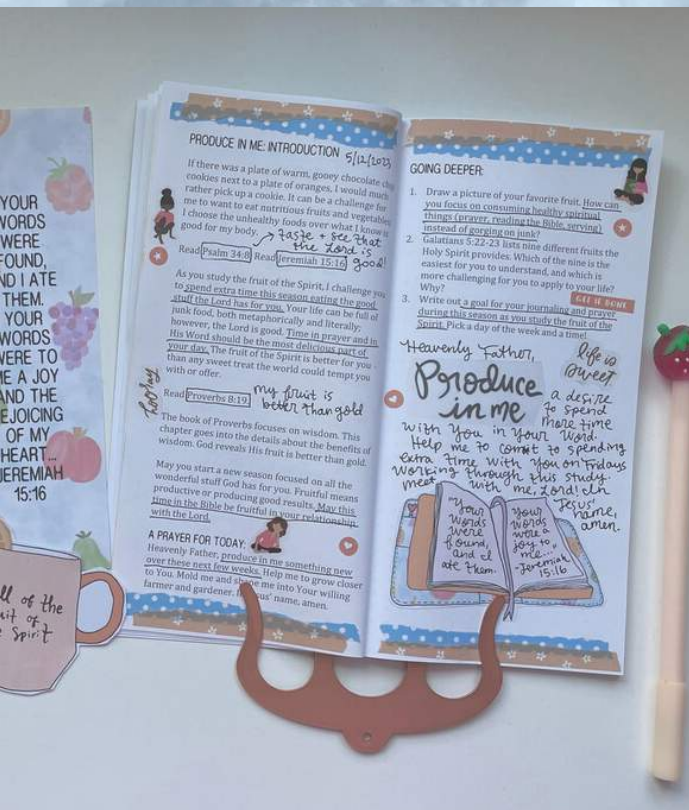 YOUR
WORDS
WERE
FOUND,
AND I ATE
THEM.
YOUR
WORDS
WERE TO
ME A JOY
AND THE
REJOICING
OF MY
HEART...
JEREMIAH
15:16
of the
Spirit
PRODUCE IN ME: INTRODUCTION 5/12/2023
If there was a plate of warm, gooey chocolate
cookies next to a plate of oranges, I would much
rather pick up a cookie. It can be a challenge for
me to want to eat nutritious fruits and vegetables
I choose the unhealthy foods over what I know is
good for my body. → taste + see that
the Lord is
good!
Read Psalm 34:8 Read Jeremiah 15:16
As you study the fruit of the Spirit, I challenge you
to spend extra time this season eating the good
stuff the Lord has for you. Your life can be full of
junk food, both metaphorically and literally;
however, the Lord is good. Time in prayer and in
His Word should be the most delicious part of
your day. The fruit of the Spirit is better for you
than any sweet treat the world could tempt you
with or offer.
hooray
Read Proverbs 8:19. my fruit is
better than gold
The book of Proverbs focuses on wisdom. This
chapter goes into the details about the benefits of
wisdom. God reveals His fruit is better than gold.
May you start a new season focused on all the
wonderful stuff God has for you. Fruitful means
productive or producing good results. May this
time in the Bible be fruitful in your relationship
with the Lord.
A PRAYER FOR TODAY:
Heavenly Father, produce in me something new
over these next few weeks. Help me to grow closer
to You. Mold and shape me into Your willing
farmer and gardener. name, amen.
GOING DEEPER:
1. Draw a picture of your favorite fruit. How can
you focus on consuming healthy spiritual
things (prayer, reading the Bible, serving)
instead of gorging on junk?
2. Galatians 5:22-23 lists nine different fruits the
Holy Spirit provides. Which of the nine is the
easiest for you to understand, and which is
more challenging for you to apply to your life?
Why?
GET IT DONE
3. Write out a goal for your journaling and prayer
during this season as you study the fruit of the
Spirit. Pick a day of the week and a time!
Heavenly Father,
life is
sweet
Produce
in me
a desire
to spend
more time
with You in Your Word.
Help me to commit to spending
extra time with You on Fridays
working through this study.
meet with me, Lord! In
Jesus'
name,
amen.
"Your
words
were
found,
and I
ate them.
Your
words
were a
joy to
me..."
-Jeremiah
15:16